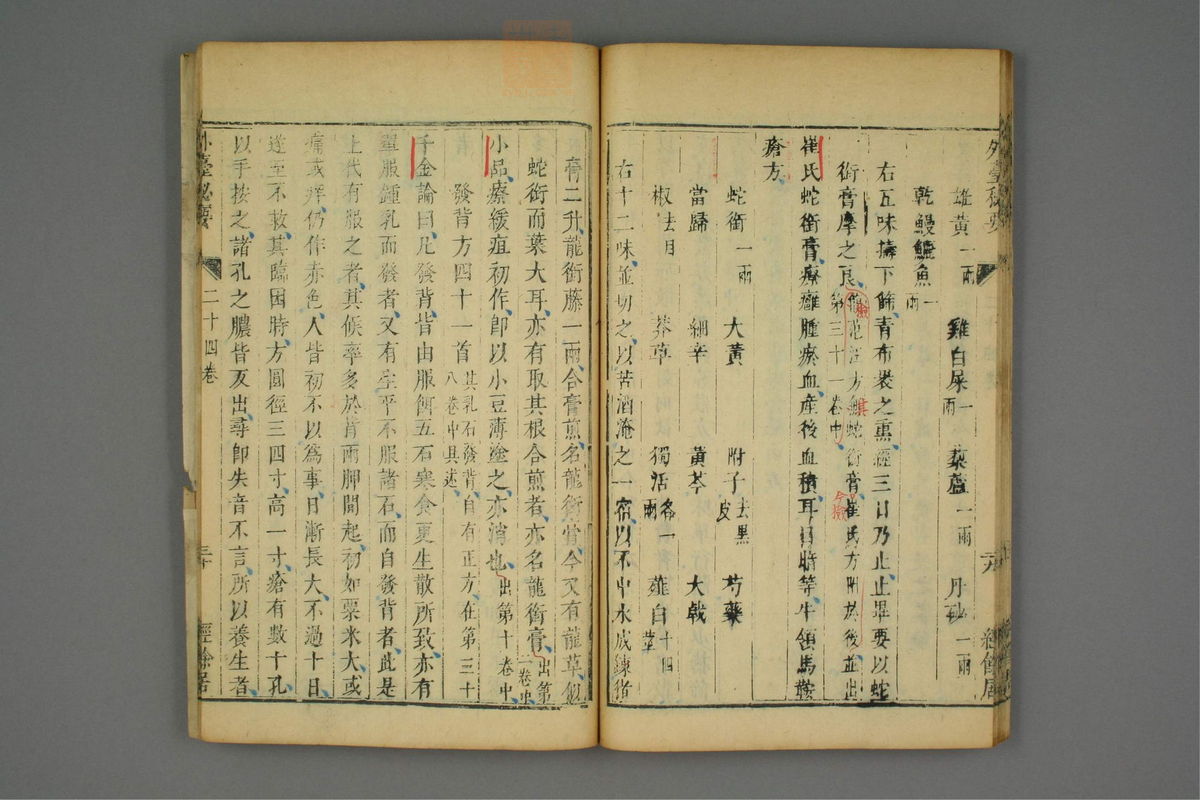 雄黃一兩 雞白屎一兩 藜蘆一兩 丹砂一兩
乾鰻鱺魚一兩
右五味擣下篩青布裹之熏經三日乃止止畢要以蛇
銜膏摩之良 檢范汪方無蛇銜膏崔氏方附於後並出
第三十一卷中
崔氏蛇銜膏療癰腫瘀血產後血積耳目暗等牛領馬鞍
瘡方
蛇銜一兩 大黃 附子去黑皮 芍藥
當歸 細辛 黃芩 大戟
椒去目 莽草 獨活各一兩 薤白十四莖
右十二味並切之以苦酒淹之一宿以不中水成鍊猪
外臺秘要 二十四卷 經餘居
膏二升龍銜藤一兩合膏煎名龍銜膏今又有龍草似
蛇銜而葉大耳亦有取其根合煎者亦名龍銜膏出第
一卷中
小品療緩疽初作即以小豆薄塗之亦消也出第十卷中
發背方四十一首 其乳石發背自有正方在第三十
八卷中具述
千金論曰凡發背皆由服餌五石寒食更生散所致亦有
單服鍾乳而發者又有生平不服諸石而自發背者此是
上代有服之者其候率多於背兩胛間起初如粟米大或
痛或痒仍作赤色人皆初不以為事日漸長大不過十日
遂至不救其臨困時方圓徑三四寸高一寸瘡有數十孔
以手按之諸孔之膿皆反出尋即失音不言所以養生者
外臺秘要 二十四卷 三十 經餘居